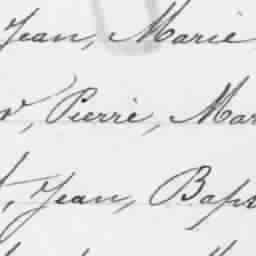 Jean, Marie
Pierre, Mar
Jean, Bap